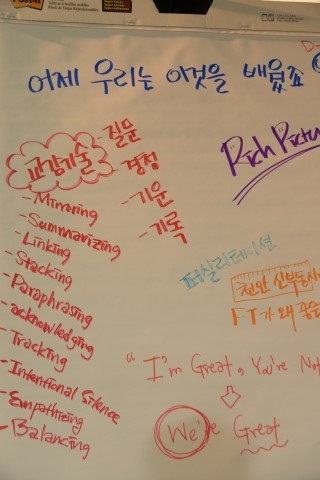 어제 우리는 이것을 배웠죠
교감기술
- 질문
- 경청
- 기운
- 기록
Rich Pictu
- Mirroring
- Summarizing
- Linking
- Stacking
- Paraphrasing
- acknowledging
- Tracking
- Intentional Silence
- Empathizing
- Balancing
퍼실리테이션
천안 신부동
FT가 왜 좋은
" I'm Great, You're Not
We're Great